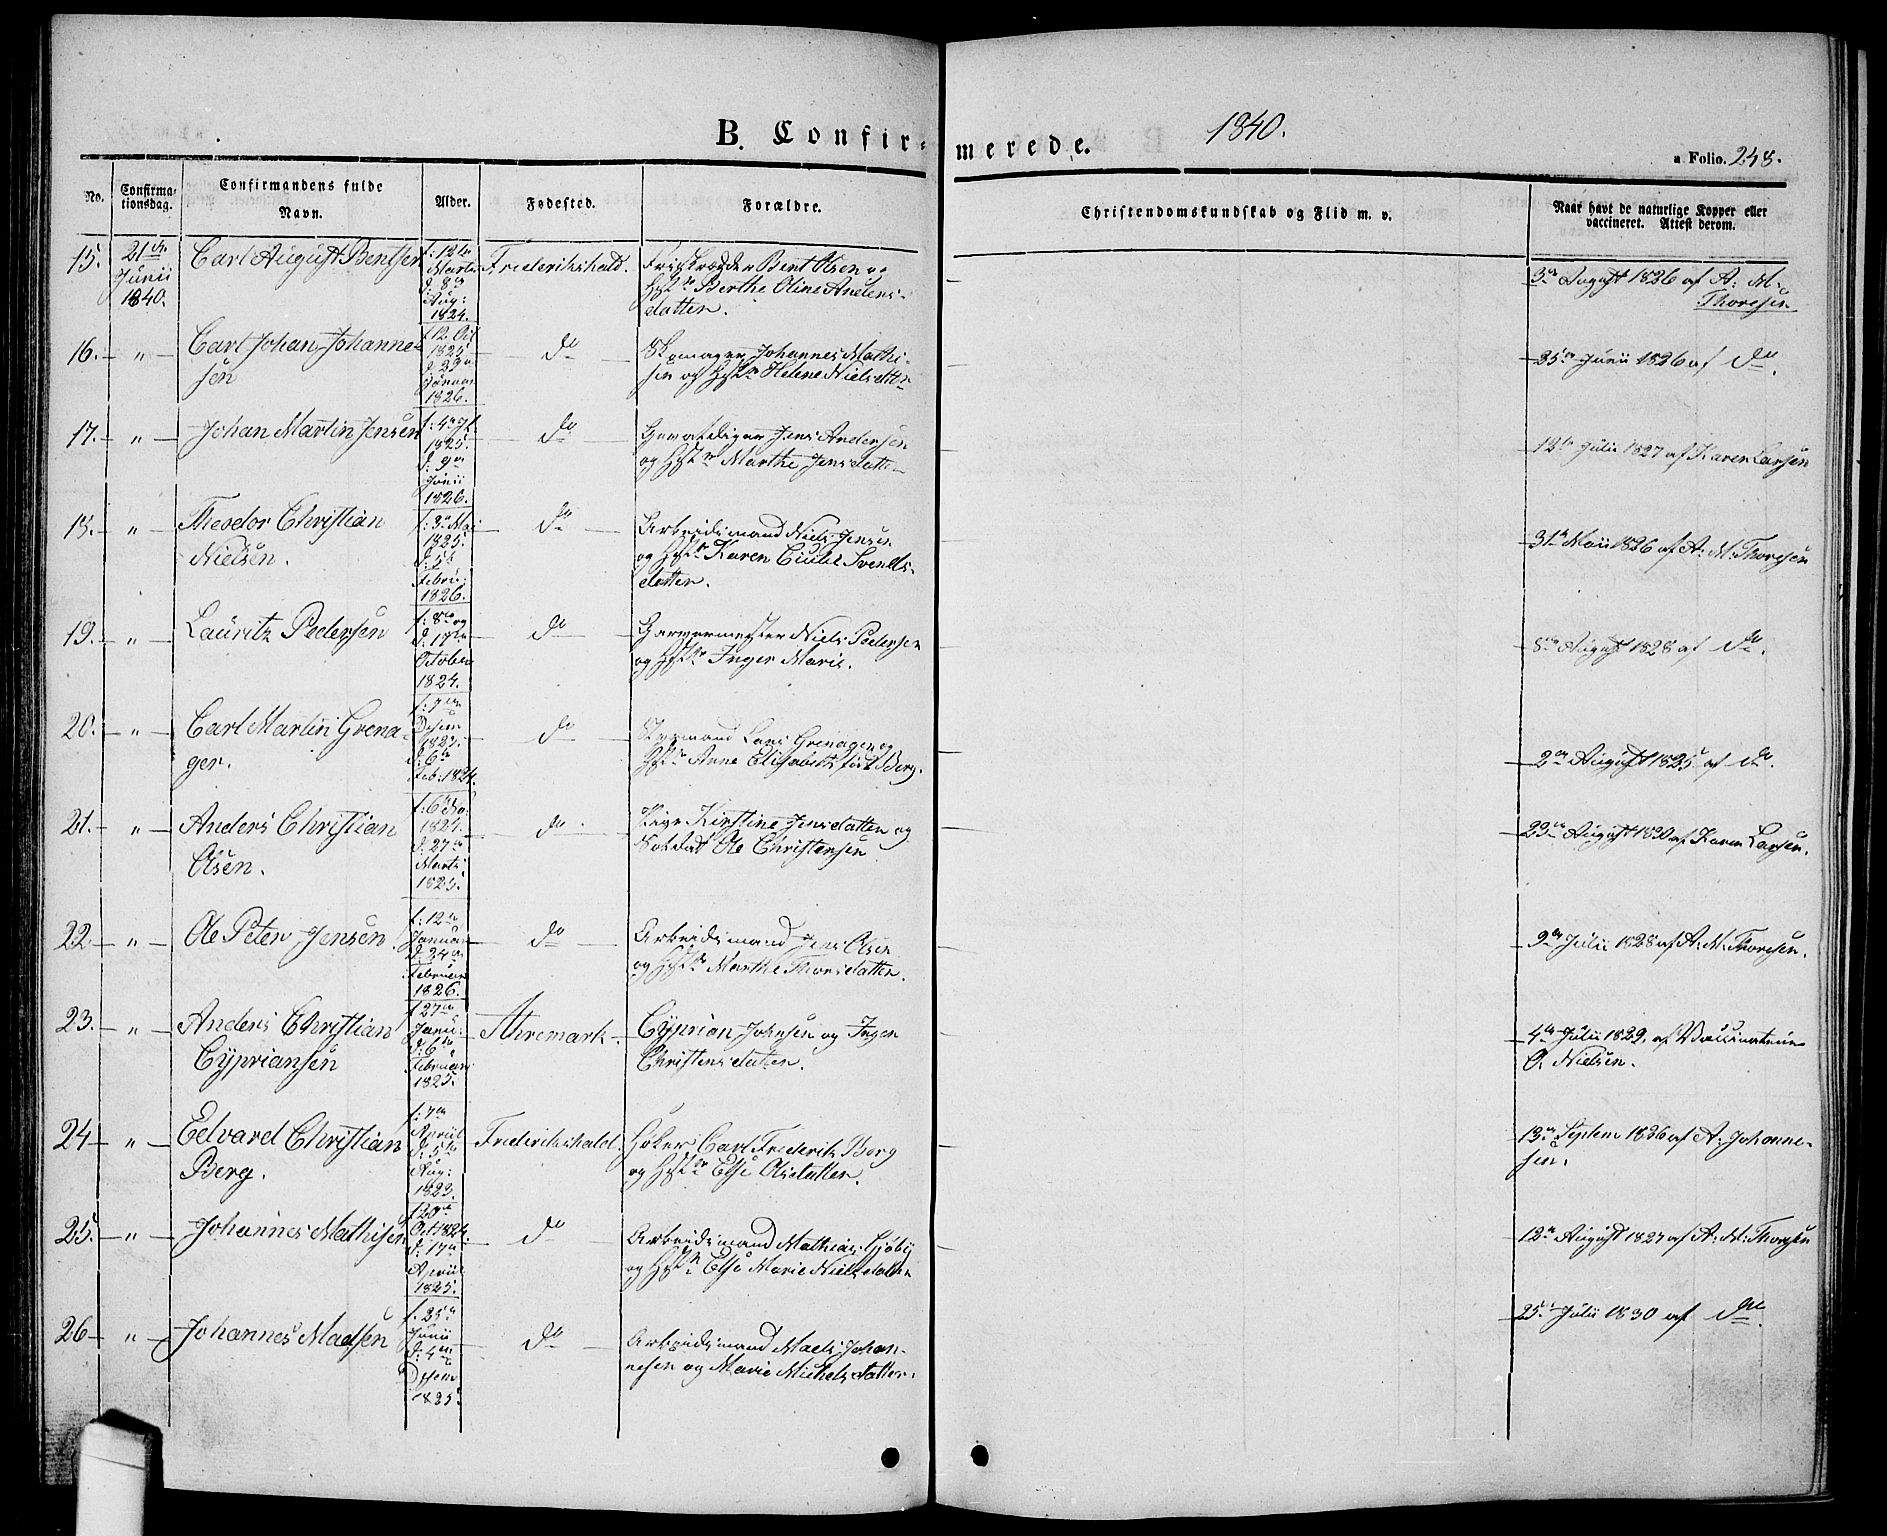 B. Confir-
merede.
1840.
a Folio. 248.
No.
Confirma-
tionsdag.
Confirmandens fulde
Navn.
Alder.
Fødested.
Forældre.
Christendomskundskab og Flid m. v.
Naar havt de naturlige Kopper eller
vaccineret. Attest derom.
15.
21de
Junii
1840.
Carl August Bentsen
f: 12te
Marti
d: 8de
Aug:
1824.
Frederikshald.
Bent Olsen og
Hst Berthe Oline Anders-
datter.
3de August 1826 af A: M:
Thoresen
16. — " —
Carl Johan Johanne-
sen
f 12 Oct
1825
d 29de
Januar
1826.
do
Skomager Johannes Mathi-
sen og Hst Helene Nielsdtter
25de Junii 1826 af do.
17. — " —
Johan Martin Jensen
1825.
d: 9de
Junii
1826.
do
Jens Andersen
og Hst Marthe Jensdatter
12te Julii 1827 af Karen Larsen
18. — " —
Theodor Christian
Nielsen.
f: 3de Mai
1825.
Febru:
1826.
do
Arbeidsmand Niels Jensen
og Hst Karen Svends-
datter.
31te Maii 1826 af A: M: Thoresen
19. — " —
Lauritz Pedersen
f: 8de og
d: 17de
October
1824.
do
Garvermester Niels Pedersen
og Hst Inger Marie.
8de August 1828 af do.
20. — " —
Carl Martin Grena-
ger.
f: 7de
Decem
1823.
d: 6te
Feb: 1824.
do
Styrmand Lars Grenager og
Hst Anne Elisabeth født Berg.
2de August 1825 af do.
21. — " —
Anders Christian
Olsen.
1824.
d: 27de
Marti
1825.
do
Pige Kirstine Jensdatter og
Soldat Ole Christensen
23de August 1830 af Karen Larsen.
22. — " —
Ole Peter Jensen.
f: 12te
Januar
d: 24de
Februar
1826.
do
Arbeidsmand Jens Olsen
og Hst Marthe Thorsdatter.
9de Julii 1828 af A: M: Thoresen.
23. — " —
Anders Christian
Cypriansen
f 27de
Janu:
d: 6te
Februar
1825.
Ahremark.
Cyprian Johnsen og Inger
Christensdatter.
4de Julii 1829. af Vaccinateur
O. Nielsen.
24 — " —
Edvard Christian
Berg.
f: 7de
April
d: 5te
Aug:
1823.
Frederikshald.
Høker Carl Frederik Berg
og Hst Else Olsdatter.
13de Septem 1836 af A: Johanne-
sen.
25. — " —
Johannes Mathisen
f 20de
Oct 1824.
d: 17de
April
1825.
do
Arbeidsmand Mathias Gjøby
og Hst Else Marie Nielsdatter
12te August 1827 af A: M: Thoresen
26 — " —
Johannes Madsen
f: 25de
Junii
d: 4de
Decem
1825.
do
Arbeidsmand Mads Johan-
nesen og Marie Michelsdatter.
25de Julii 1830 af do.